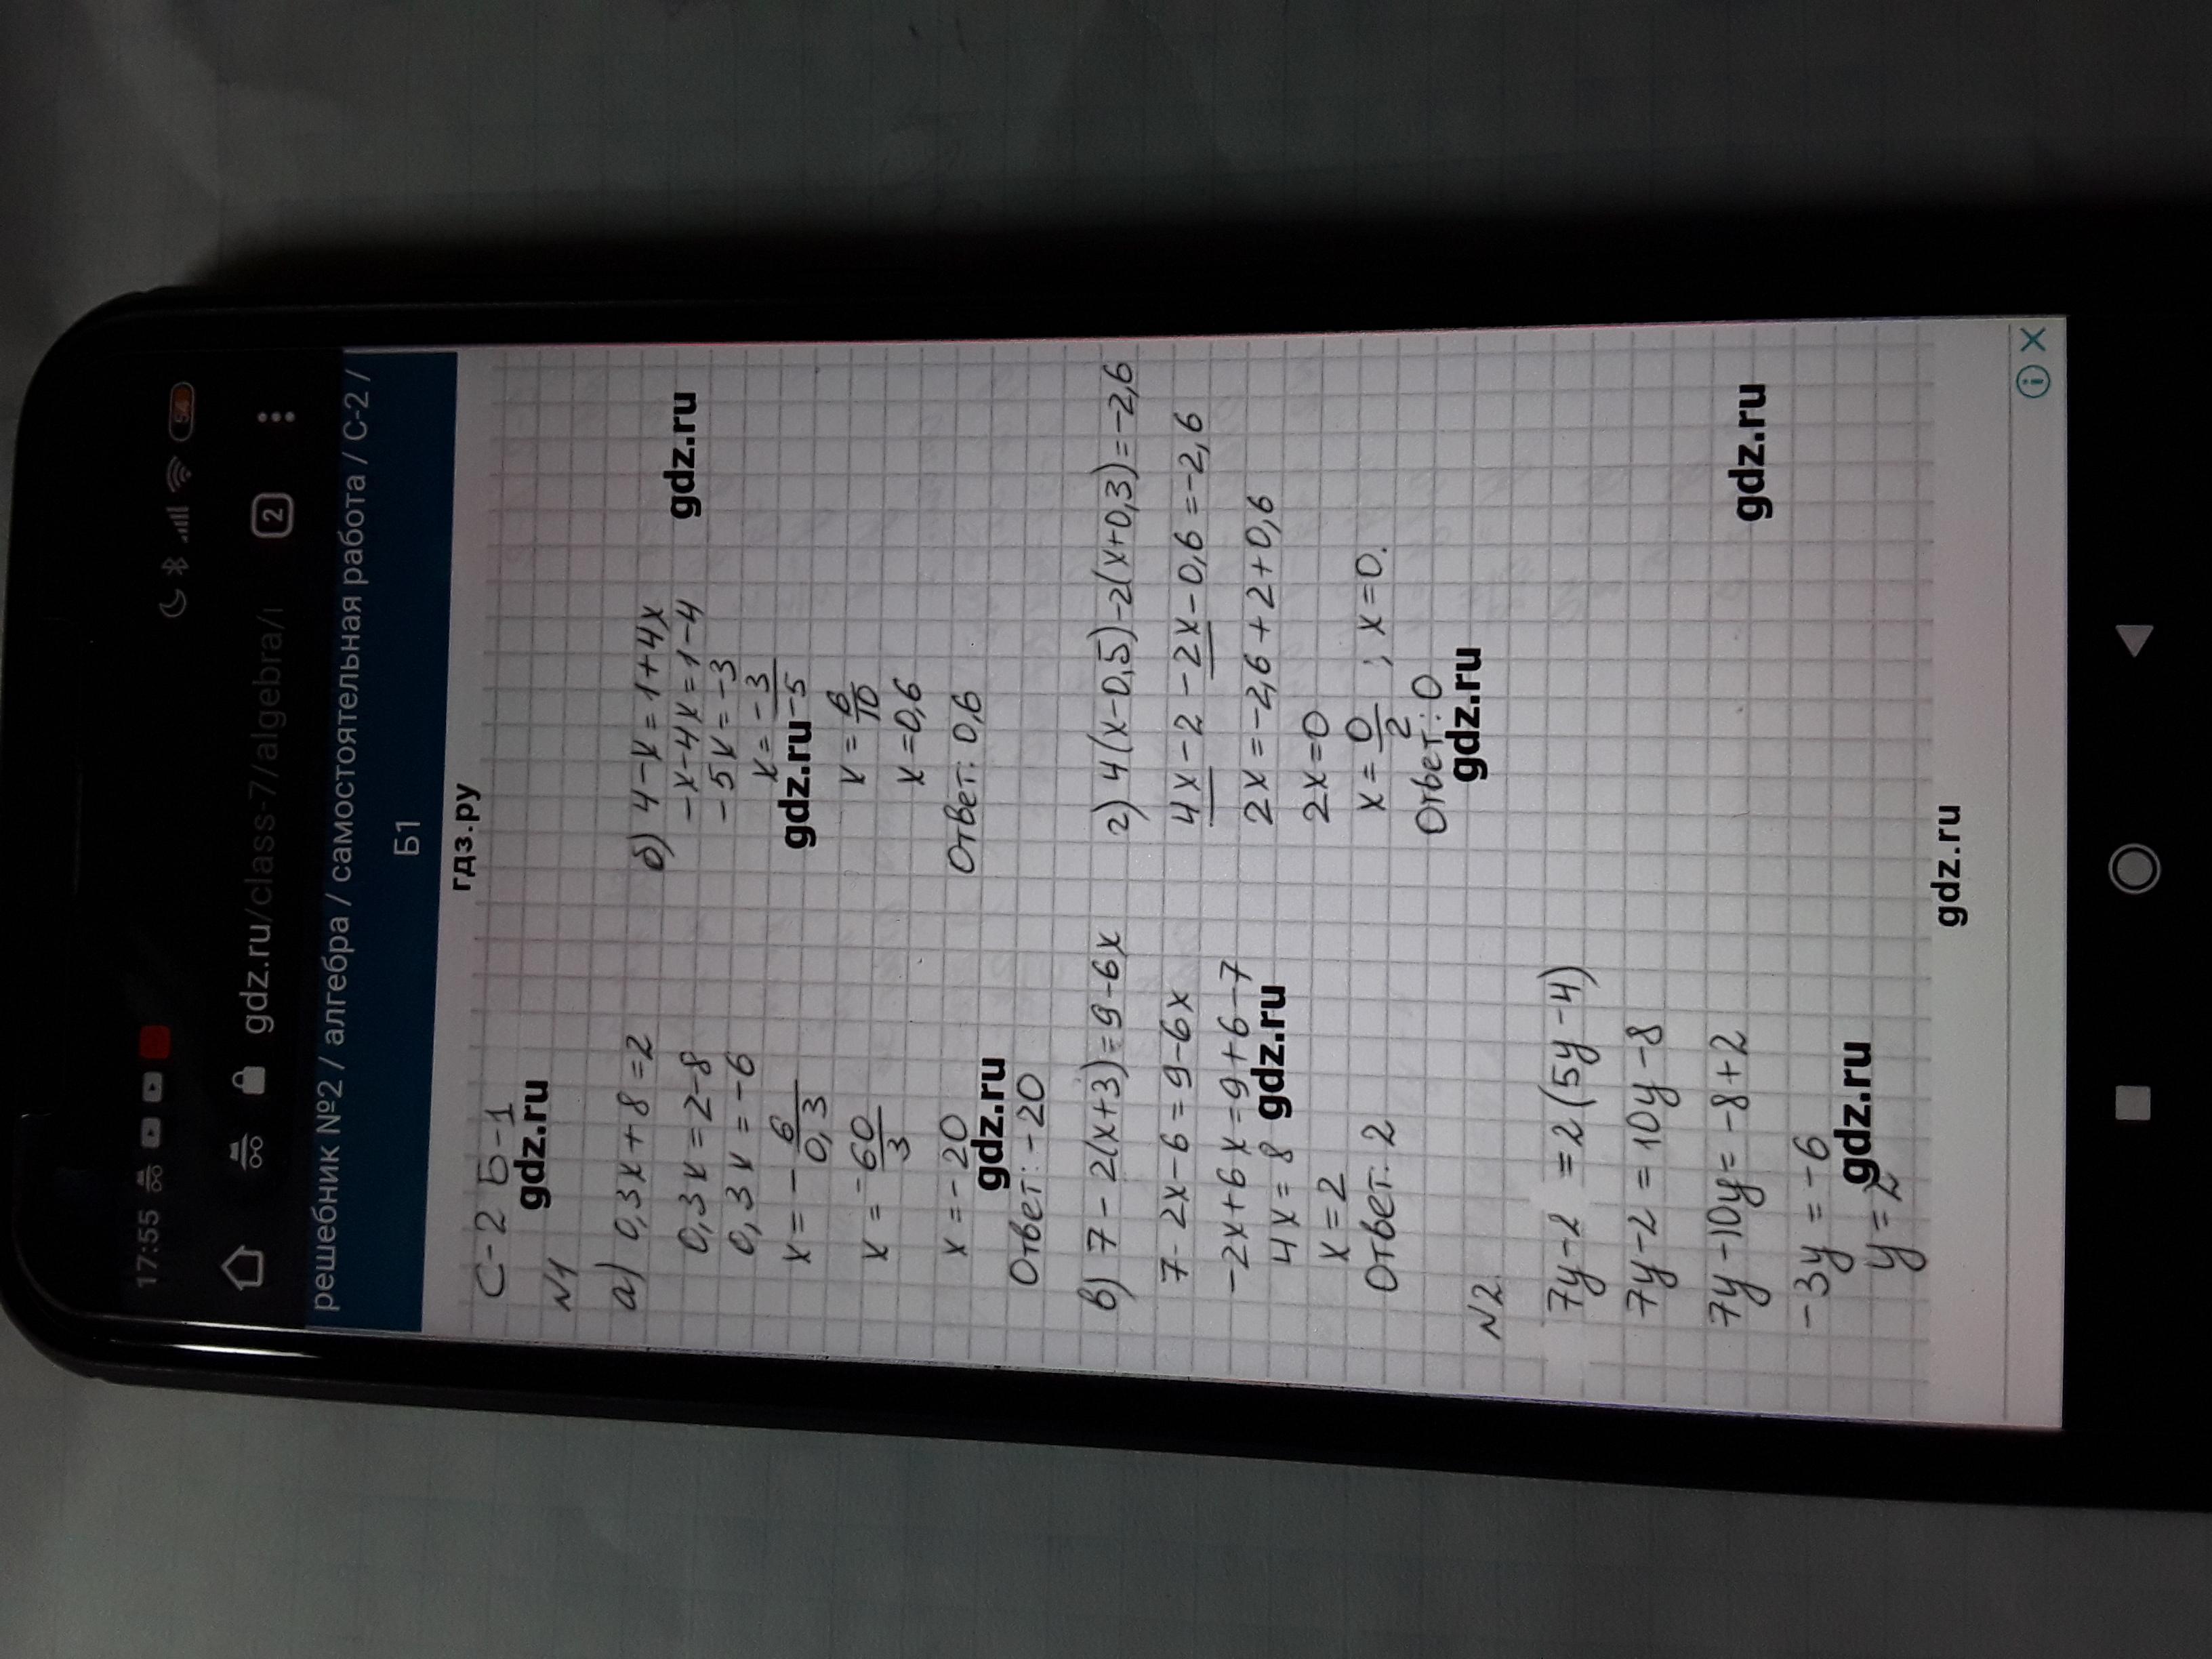 17:55
54
gdz.ru/class-7/algebra/
2
решебник №2 / алгебра / самостоятельная работа / С-2 /
Б1
гдз.ру
С-2 Б-1
gdz.ru
N1
а) 0,3x+8=2
0,3x=2-8
0,3x=-6
x=-6/0,3
x=-60/3
x=-20
gdz.ru
Ответ: -20
б) 4-x=1+4x
gdz.ru
-x-4x=1-4
-5x=-3
x=-3/-5
gdz.ru
x=6/10
x=0,6
Ответ: 0,6
в) 7-2(x+3)=9-6x
7-2x-6=9-6x
-2x+6x=9+6-7
4x=8
gdz.ru
x=2
Ответ: 2
г) 4(x-0,5)-2(x+0,3)=-2,6
4x-2-2x-0,6=-2,6
2x=-2,6+2+0,6
2x=0
x=0/2; x=0.
Ответ: 0
gdz.ru
N2
7y-2 =2(5y-4)
7y-2=10y-8
7y-10y=-8+2
-3y=-6
gdz.ru
y=2
gdz.ru
gdz.ru